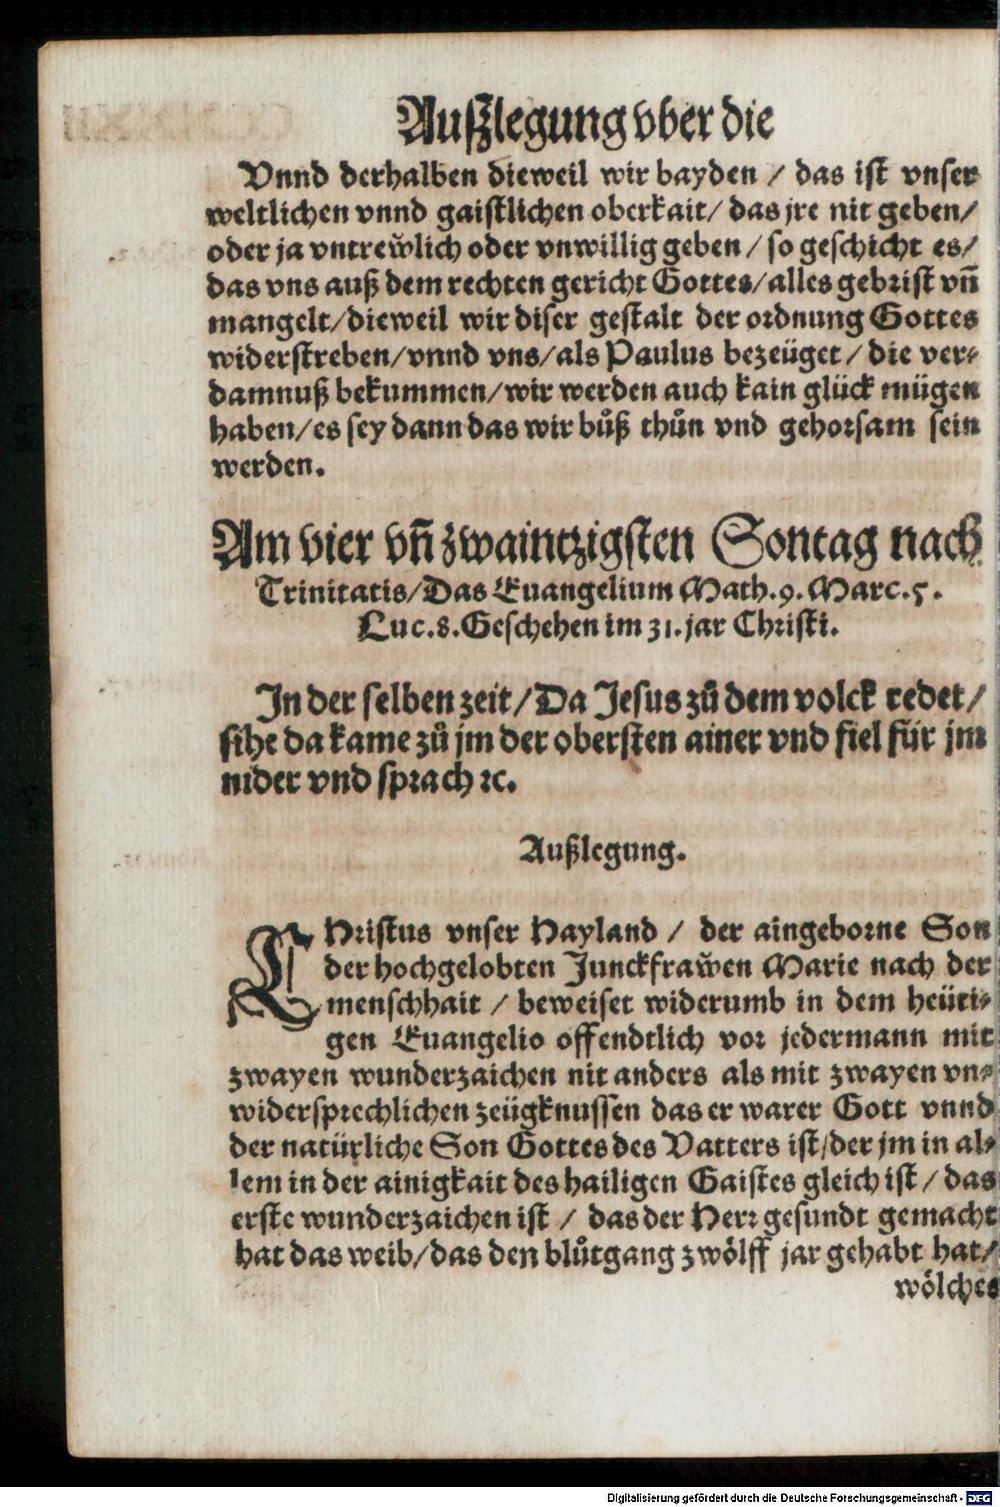 Außlegung vber die
Vnnd derhalben dieweil wir bayden / das ist vnser
weltlichen vnnd gaistlichen oberkait/ das jre nit geben/
oder ja vntrew̆lich oder vnwillig geben / so geschicht es/
das vns auß dem rechten gericht Gottes/ alles gebrist vn̄
mangelt/dieweil wir diser gestalt der ordnung Gottes
widerstreben/vnnd vns/als Paulus bezeüget / die ver⸗
damnuß bekummen/wir werden auch kain glück mügen
haben/es sey dann das wir bůß thůn vnd gehorsam sein
werden.
Am vier vn̄ zwaintzigsten Sontag nach
Trinitatis/Das Euangelium Math.9. Marc.5.
Luc.8. Geschehen im 31. jar Christi.
In der selben zeit/Da Jesus zů dem volck redet/
sihe da kame zů jm der obersten ainer vnd fiel für jm
nider vnd sprach ꝛc.
Außlegung.
CHristus vnser Hayland / der aingeborne Son
der hochgelobten Junckfraw̆en Marie nach der
menschhait / beweiset widerumb in dem heüti⸗
gen Euangelio offendtlich vor jedermann mit
zwayen wunderzaichen nit anders als mit zwayen vn⸗
widersprechlichen zeügknussen das er warer Gott vnnd
der natürliche Son Gottes des Vatters ist/der jm in al⸗
lem in der ainigkait des hailigen Gaistes gleich ist / das
erste wunderzaichen ist / das der Herr gesundt gemacht
hat das weib/das den blůtgang zwölff jar gehabt hat/
wölches
Digitalisierung gefördert durch die Deutsche Forschungsgemeinschaft - DFG